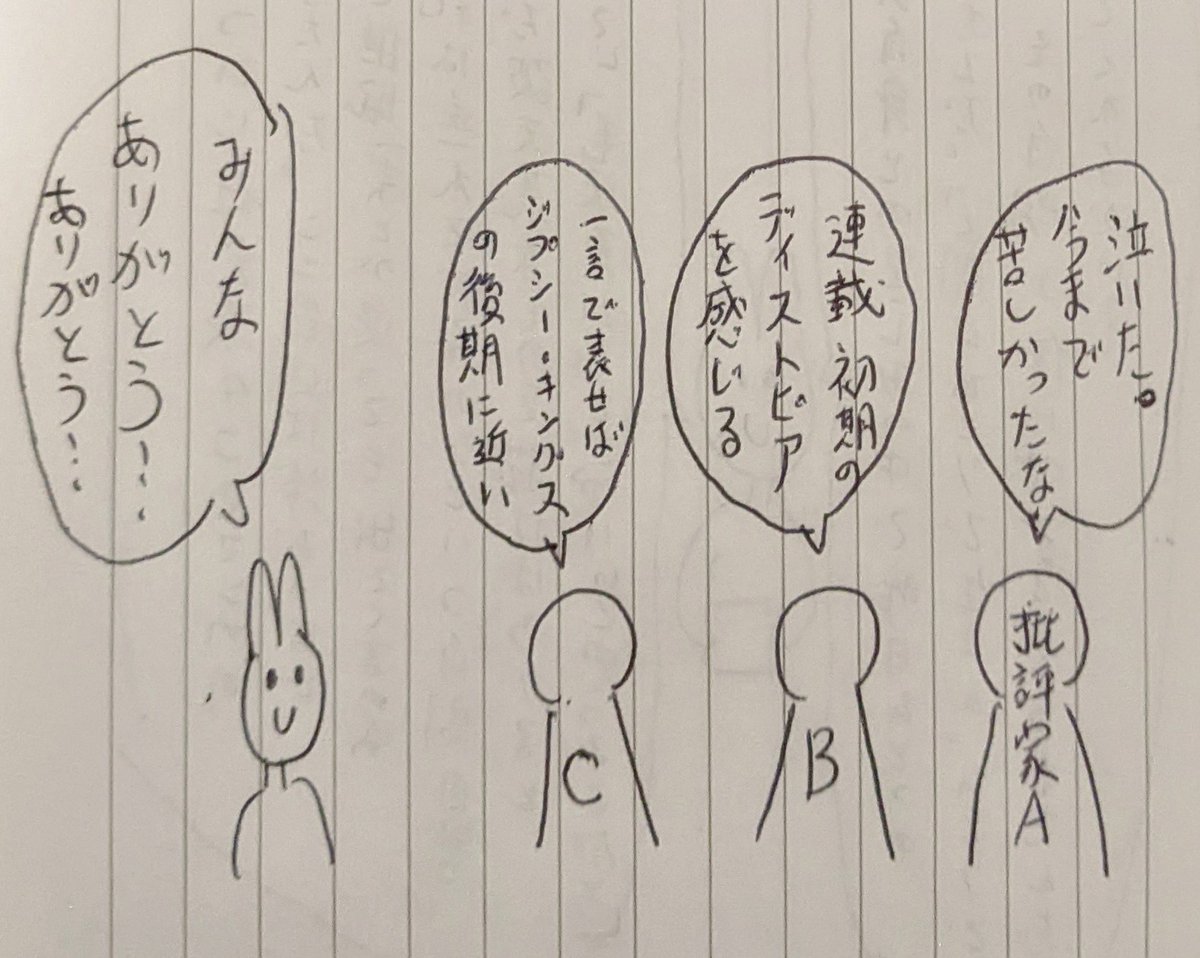 泣いた。
今まで
苦しかったな
批評家A
連載初期の
ディストピア
を感じる
B
一言で表せば
ジプシー・キングス
の後期に近い
C
みんな
ありがとう…
ありがとう…